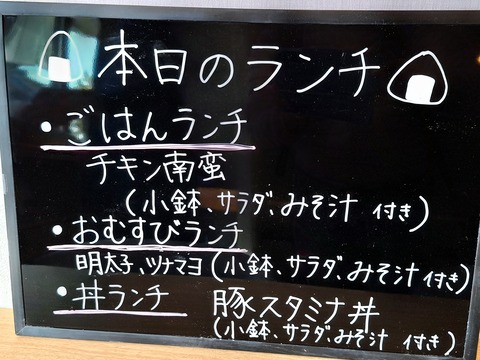 本日のランチ
・ごはんランチ
チキン南蛮
(小鉢、サラダ、みそ汁 付き)
・おむすびランチ
明太子、ツナマヨ(小鉢、サラダ、みそ汁付き)
・丼ランチ 豚スタミナ丼
(小鉢、サラダ、みそ汁 付き)